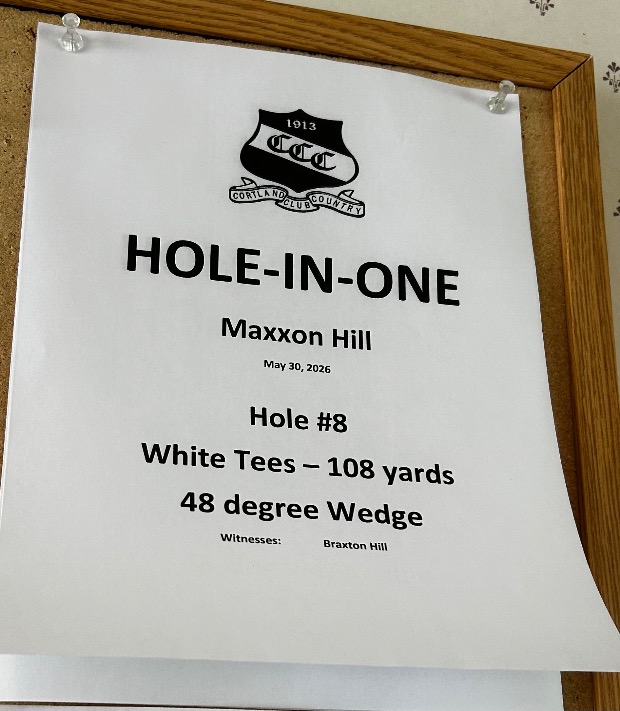 1913
CCC
CORTLAND CLUB COUNTRY
HOLE-IN-ONE
Maxxon Hill
May 30, 2026
Hole #8
White Tees – 108 yards
48 degree Wedge
Witnesses: Braxton Hill